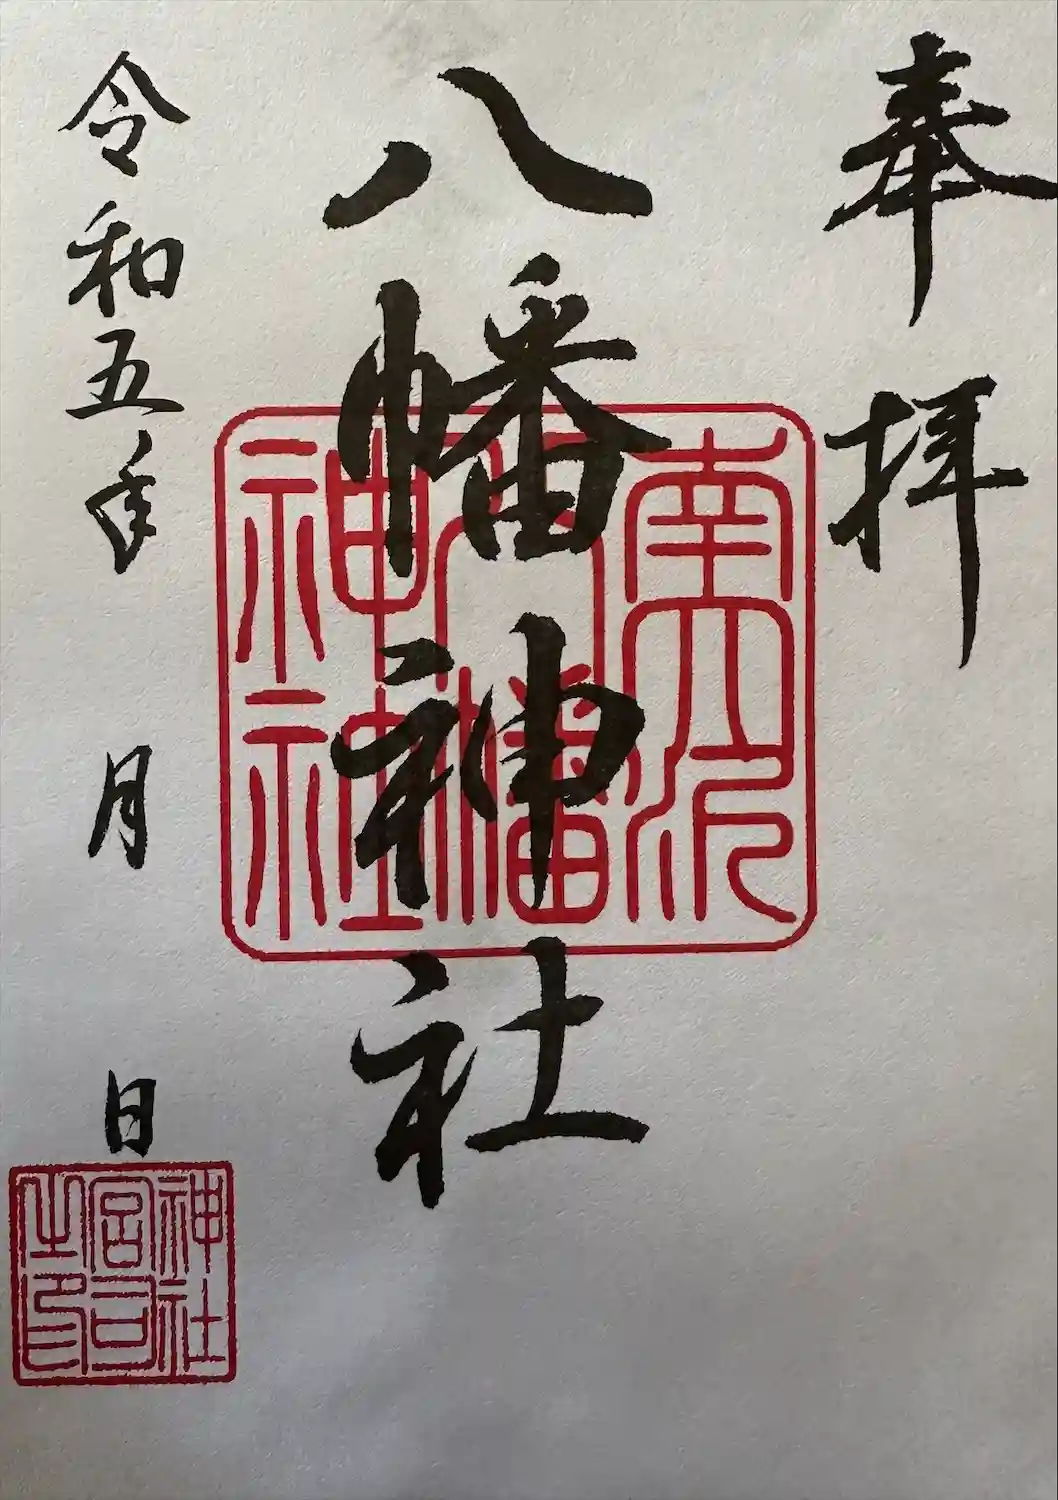 奉拝
八幡神社
南大沢
八幡
神社
令和五年 月 日
神社
宮司
之印